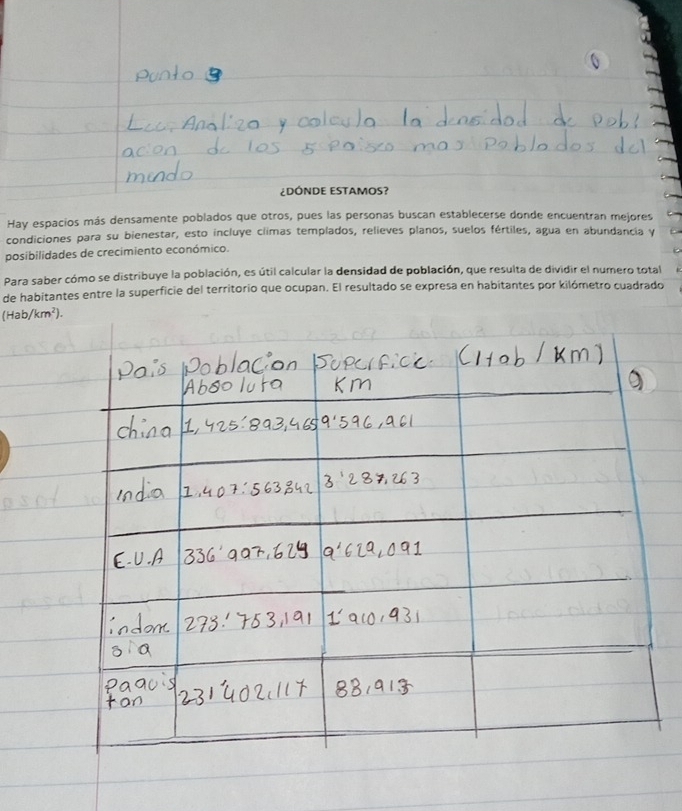 Punto 3
Lee, Analiza y calcula la densidad de Pobl
acion de los 5 Paises mas Poblados del
mundo
¿DÓNDE ESTAMOS?
Hay espacios más densamente poblados que otros, pues las personas buscan establecerse donde encuentran mejores
condiciones para su bienestar, esto incluye climas templados, relieves planos, suelos fértiles, agua en abundancia y
posibilidades de crecimiento económico.
Para saber cómo se distribuye la población, es útil calcular la densidad de población, que resulta de dividir el numero total
de habitantes entre la superficie del territorio que ocupan. El resultado se expresa en habitantes por kilómetro cuadrado
(Hab/km²).
Pais Poblacion Superficie (Hab / Km)
Absoluta Km
china 1,425'893,465 9'596,961
india 1,407'563,842 3'287,263
E.U.A 336'997,624 9'629,091
indone 273'753,191 1'910,931
sia
Paquis 231'402,117 88,913
tan